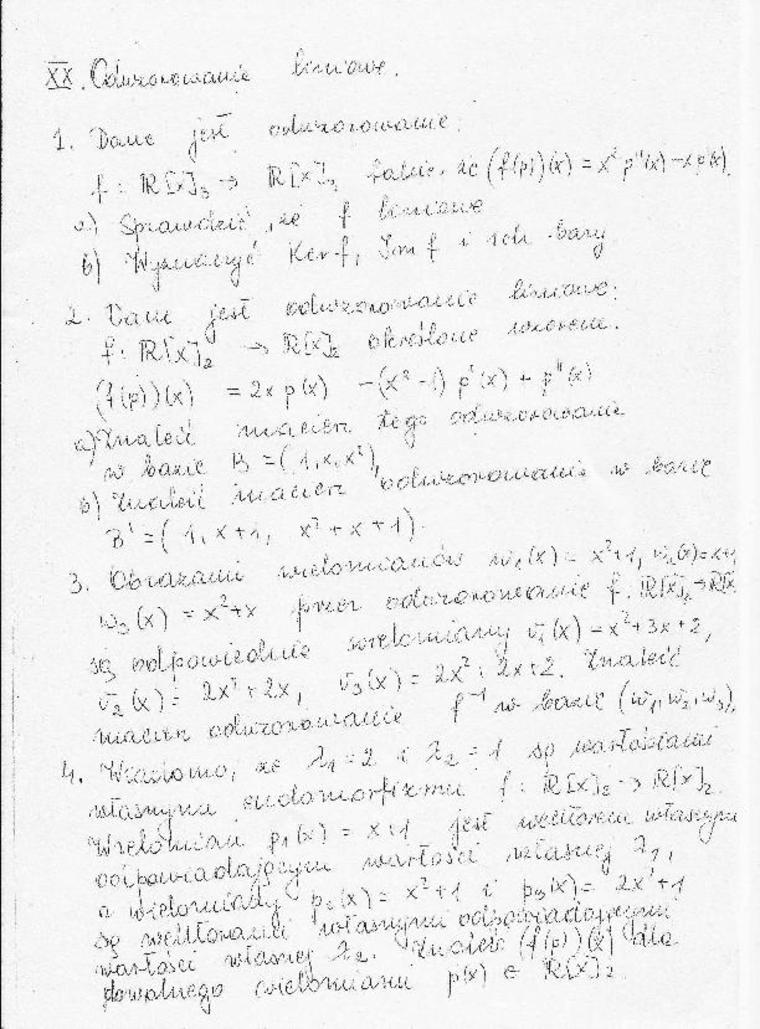 XX. Odwzorowanie liniowe.
1. Dane jest odwzorowanie:
f: ℝ[x]₃ → ℝ[x]₃ takie, że (f(p))(x) = x² p''(x) − x p'(x).
a) Sprawdzić, że f liniowe
b) Wyznaczyć Ker f, Im f i ich bazy
2. Dane jest odwzorowanie liniowe:
f: ℝ[x]₂ → ℝ[x]₂ określone wzorem:
(f(p))(x) = 2x p(x) − (x² − 1) p'(x) + p''(x)
a) Znaleźć macierz tego odwzorowania
w bazie B = (1, x, x²),
b) Znaleźć macierz odwzorowania w bazie
B' = (1, x+1, x²+x+1).
3. Obrazami wielomianów w₁(x) = x²+1, w₂(x) = x+1,
w₃(x) = x²+x przez odwzorowanie f: ℝ[x]₂ → ℝ[x
są odpowiednio wielomiany v₁(x) = x²+3x+2,
v₂(x) = 2x²+2x, v₃(x) = 2x²+2x+2. Znaleźć
macierz odwzorowanie f⁻¹ w bazie (w₁, w₂, w₃).
4. Wiadomo, że λ₁ = 2 i λ₂ = 1 są wartościami
własnymi endomorfizmu f: ℝ[x]₂ → ℝ[x]₂.
Wielomian p₁(x) = x+1 jest wektorem własnym
odpowiadającym wartości własnej λ₁,
a wielomiany p₂(x) = x²+1 i p₃(x) = 2x²+1
są wektorami własnymi odpowiadającymi
wartości własnej λ₂. Znaleźć (f(p))(x) dla
dowolnego wielomianu p(x) ∈ ℝ[x]₂.